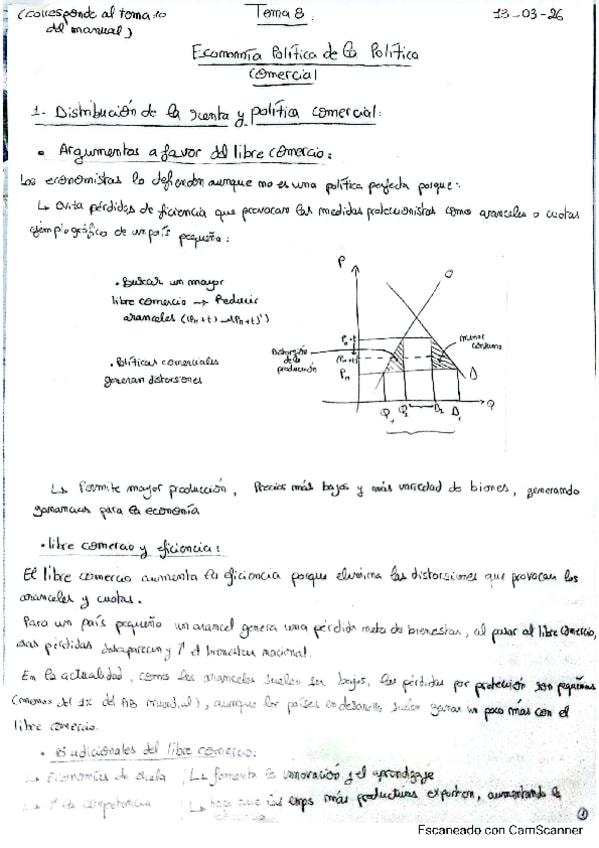 (corresponde al tema 10 del manual)
Tema 8.
13-03-26
Economía Política de la Política
comercial
1. Distribución de la renta y política comercial:
• Argumentos a favor del libre comercio:
Los economistas lo defienden aunque no es una política perfecta porque:
↳ Evita pérdidas de eficiencia que provocan las medidas proteccionistas como aranceles o cuotas
ejemplo gráfico de un país pequeño:
• Buscar un mayor
libre comercio → Reducir
aranceles ((Pm+t) → (Pm+t)')
• Políticas comerciales
generan distorsiones
P
O
Pm+t
(Pm+t)'
Pm
Distorsión
de la
producción
menor
consumo
D
Q1 Q2 D2 D1
Q
↳ Permite mayor producción, Precios más bajos y más variedad de bienes, generando
ganancias para la economía
• libre comercio y eficiencia:
El libre comercio aumenta la eficiencia porque elimina las distorsiones que provocan los
aranceles y cuotas.
Para un país pequeño un arancel genera una pérdida neta de bienestar, al pasar al libre comercio,
esas pérdidas desaparecen y ↑ el bienestar nacional.
En la actualidad, como los aranceles suelen ser bajos, las pérdidas por protección son pequeñas
(menos del 1% del mundial), aunque los países en desarrollo suelen ganar un poco más con el
libre comercio.
• adicionales del libre comercio:
↳ Economías de escala
↳ fomenta la innovación y el aprendizaje
↳ ↑ la competencia
↳ hace que las emps más productivas exporten, aumentando la
eficiencia
1
Escaneado con CamScanner